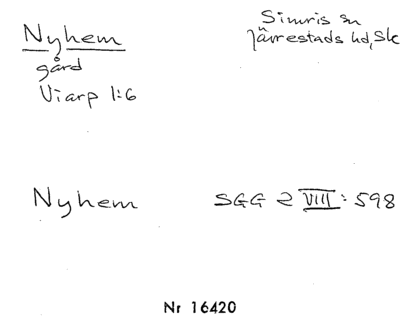 Nyhem
gård
Viarp 1:6
Simris sn
Järrestads hd, Sk
Nyhem SGG 2 VIII: 598
Nr 16420